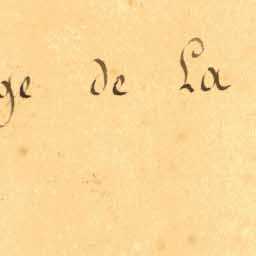 ge de La